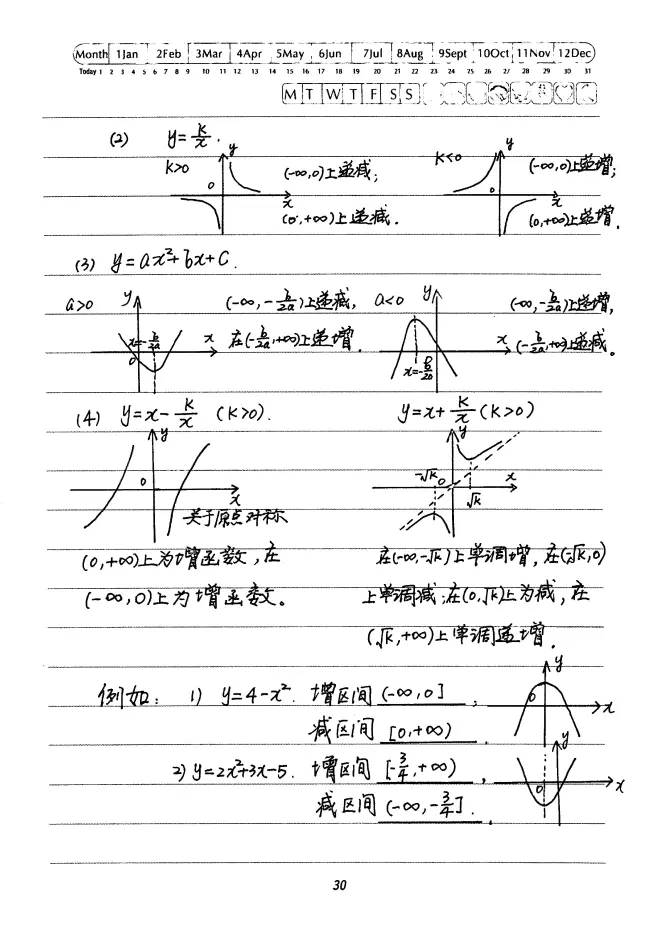 Month 1Jan 2Feb 3Mar 4Apr 5May 6Jun 7Jul 8Aug 9Sept 10Oct 11Nov 12Dec
Today 1 2 3 4 5 6 7 8 9 10 11 12 13 14 15 16 17 18 19 20 21 22 23 24 25 26 27 28 29 30 31
M T W T F S S
(2) y=k/x.
K>0 y 0 x (-∞,0)上递减; K<0 y 0 x (-∞,0)上递增;
(0,+∞)上递减. (0,+∞)上递增.
(3) y=ax²+bx+C.
a>0 y (-∞,-b/2a)上递减, a<0 y (-∞,-b/2a)上递增,
x=-b/2a 0 x 在(-b/2a,+∞)上递增. x=-b/2a 0 x (-b/2a,+∞)上递减。
(4) y=x-k/x (K>0). y=x+k/x (K>0)
y 0 x y -√K 0 √K x
关于原点对称
(0,+∞)上为增函数,在 在(-∞,-√K)上单调增,在(-√K,0)
(-∞,0)上为增函数。 上单调减;在(0,√K)上为减,在
(√K,+∞)上单调递增.
例如: 1) y=4-x². 增区间 (-∞,0] ; y 0 x
减区间 [0,+∞) .
2) y=2x²+3x-5. 增区间 [-3/4,+∞) , y 0 x
减区间 (-∞,-3/4] .
30